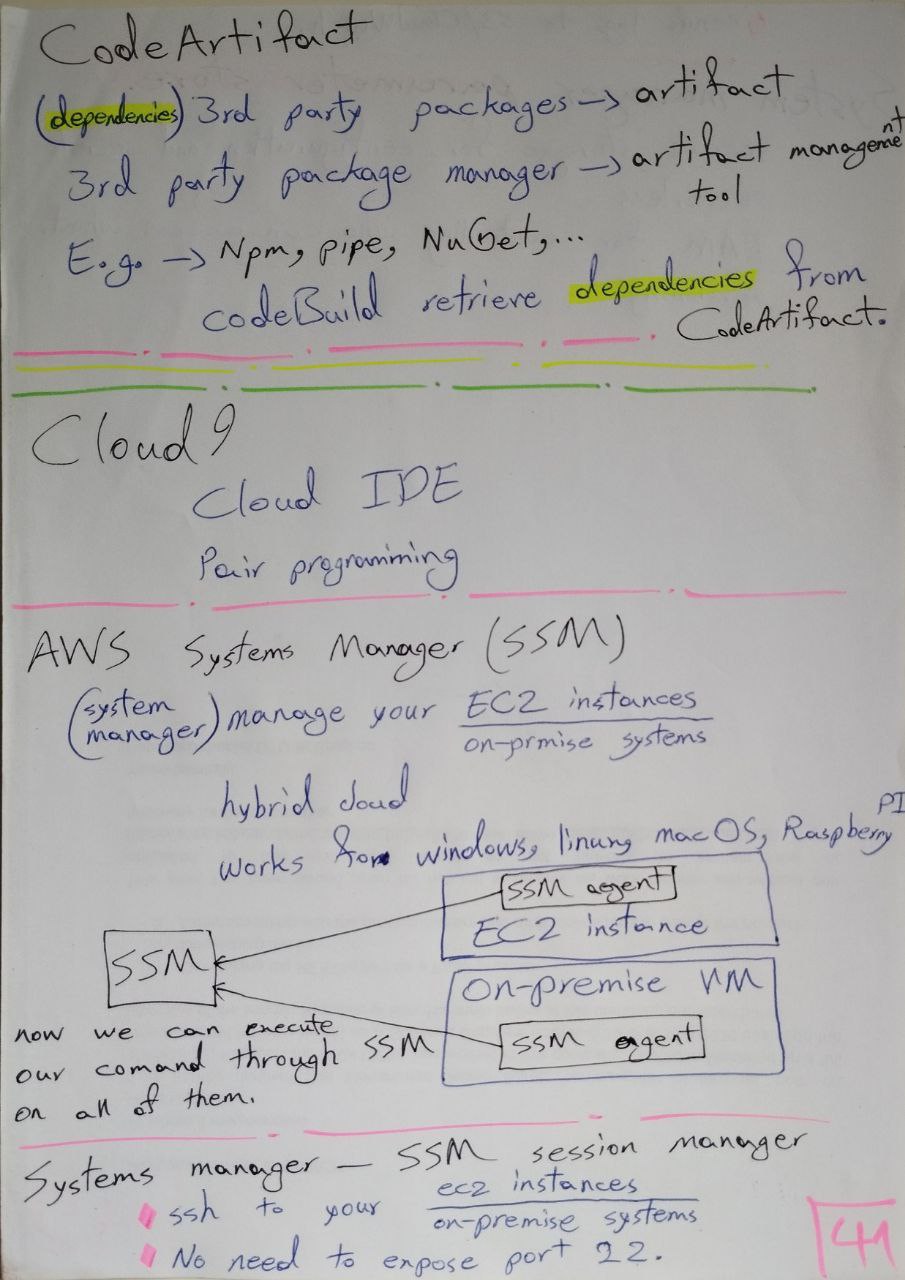 CodeArtifact
(dependencies) 3rd party packages → artifact
3rd party package manager → artifact management
tool
E.g. → Npm, pipe, NuGet,...
codeBuild retrieve dependencies from
CodeArtifact.
Cloud 9
Cloud IDE
Pair programming
AWS Systems Manager (SSM)
(system manager) manage your EC2 instances
on-prmise systems
hybrid cloud
works for windows, linux, macOS, Raspberry PI
SSM agent
EC2 instance
SSM
On-premise VM
SSM agent
now we can execute
our comand through SSM
on all of them.
Systems manager – SSM session manager
ssh to your ec2 instances
on-premise systems
No need to expose port 22.
41